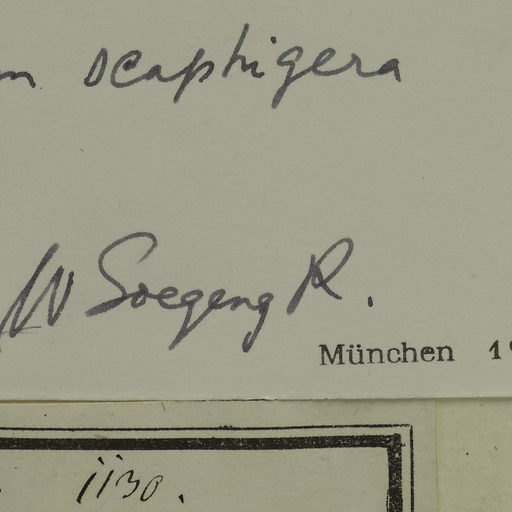 scaphigera
W Soegeng R.
München 19
1130.